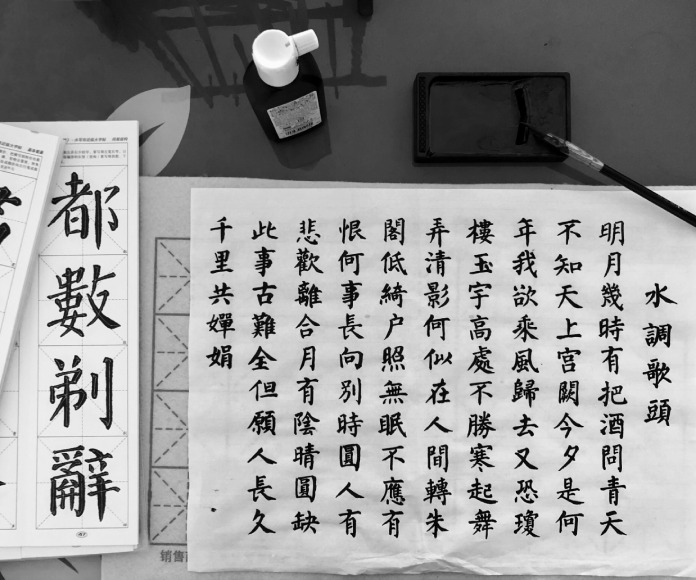 水調歌頭
明月幾時有把酒問青天
不知天上宮闕今夕是何
年我欲乘風歸去又恐瓊
樓玉宇高處不勝寒起舞
弄清影何似在人間轉朱
閣低綺户照無眠不應有
恨何事長向別時圓人有
悲歡離合月有陰晴圓缺
此事古難全但願人長久
千里共嬋娟
都數剃辭
销售